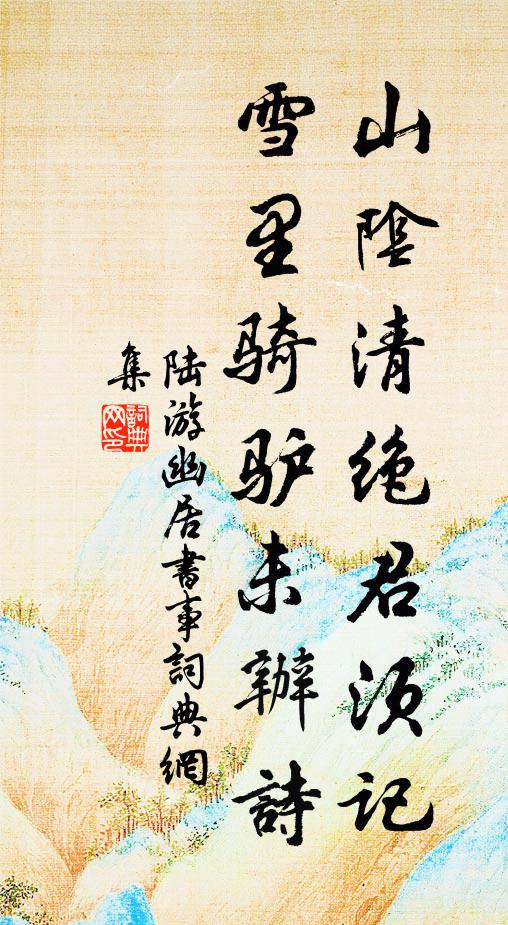 山陰清绝君须记
雪里骑驴未辦詩
陆游幽居書事詞典網
集
詞典
网印